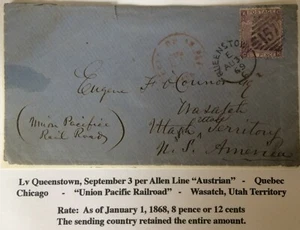 QUEENSTOWN
Eugene F. O'Connor
Wasatch
Utah Territory
(Union Pacific
Rail Road)
U.S. America
Lv Queenstown, September 3 per Allen Line "Austrian" - Quebec
Chicago - "Union Pacific Railroad" - Wasatch, Utah Territory
Rate: As of January 1, 1868, 8 pence or 12 cents
The sending country retained the entire amount.